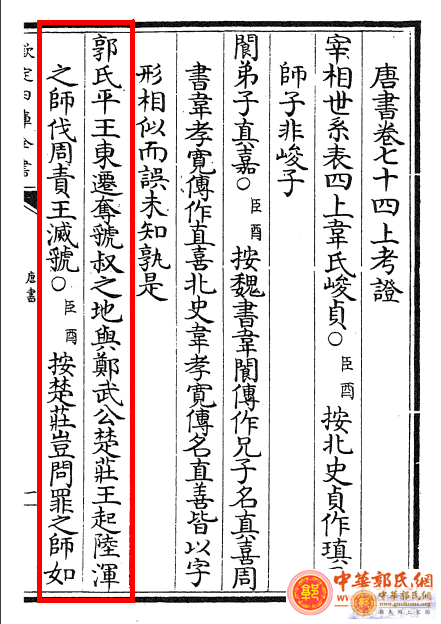 唐書卷七十四上考證
宰相世系表四上韋氏峻貞○臣酉按北史貞作瑱
師子非峻子
閬弟子真嘉○臣酉按魏書韋閬傳作兄子名真喜周
書韋孝寬傳作直喜北史韋孝寬傳名直善皆以字
形相似而誤未知孰是
郭氏平王東遷奪虢叔之地與鄭武公楚莊王起陸渾
之師伐周責王滅虢○臣酉按楚莊豈問罪之師如
欽定四庫全書
唐書
二
中華郭氏網
中華郭氏網